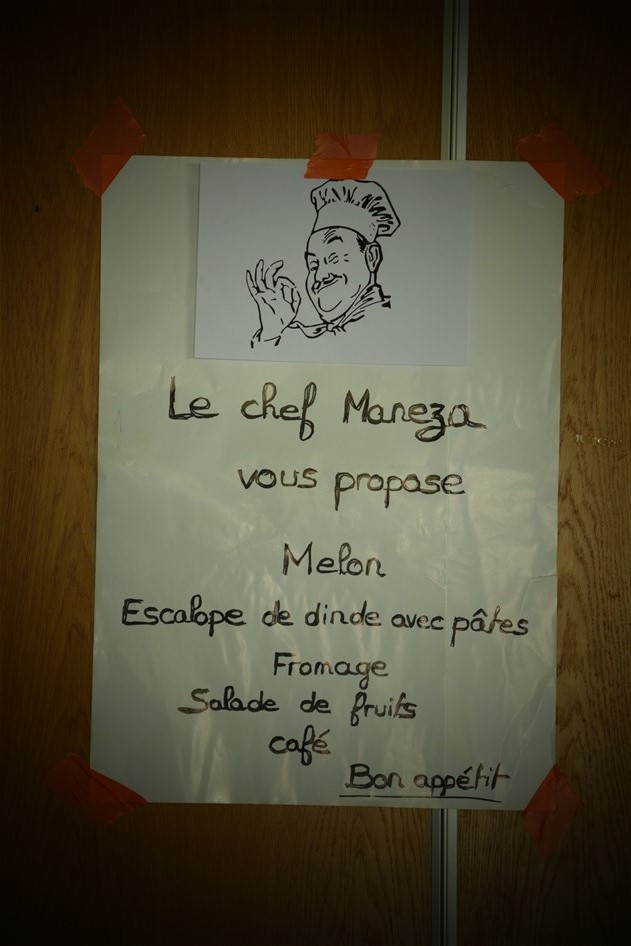 Le chef Maneza
vous propose
Melon
Escalope de dinde avec pâtes
Fromage
Salade de fruits
café
Bon appétit